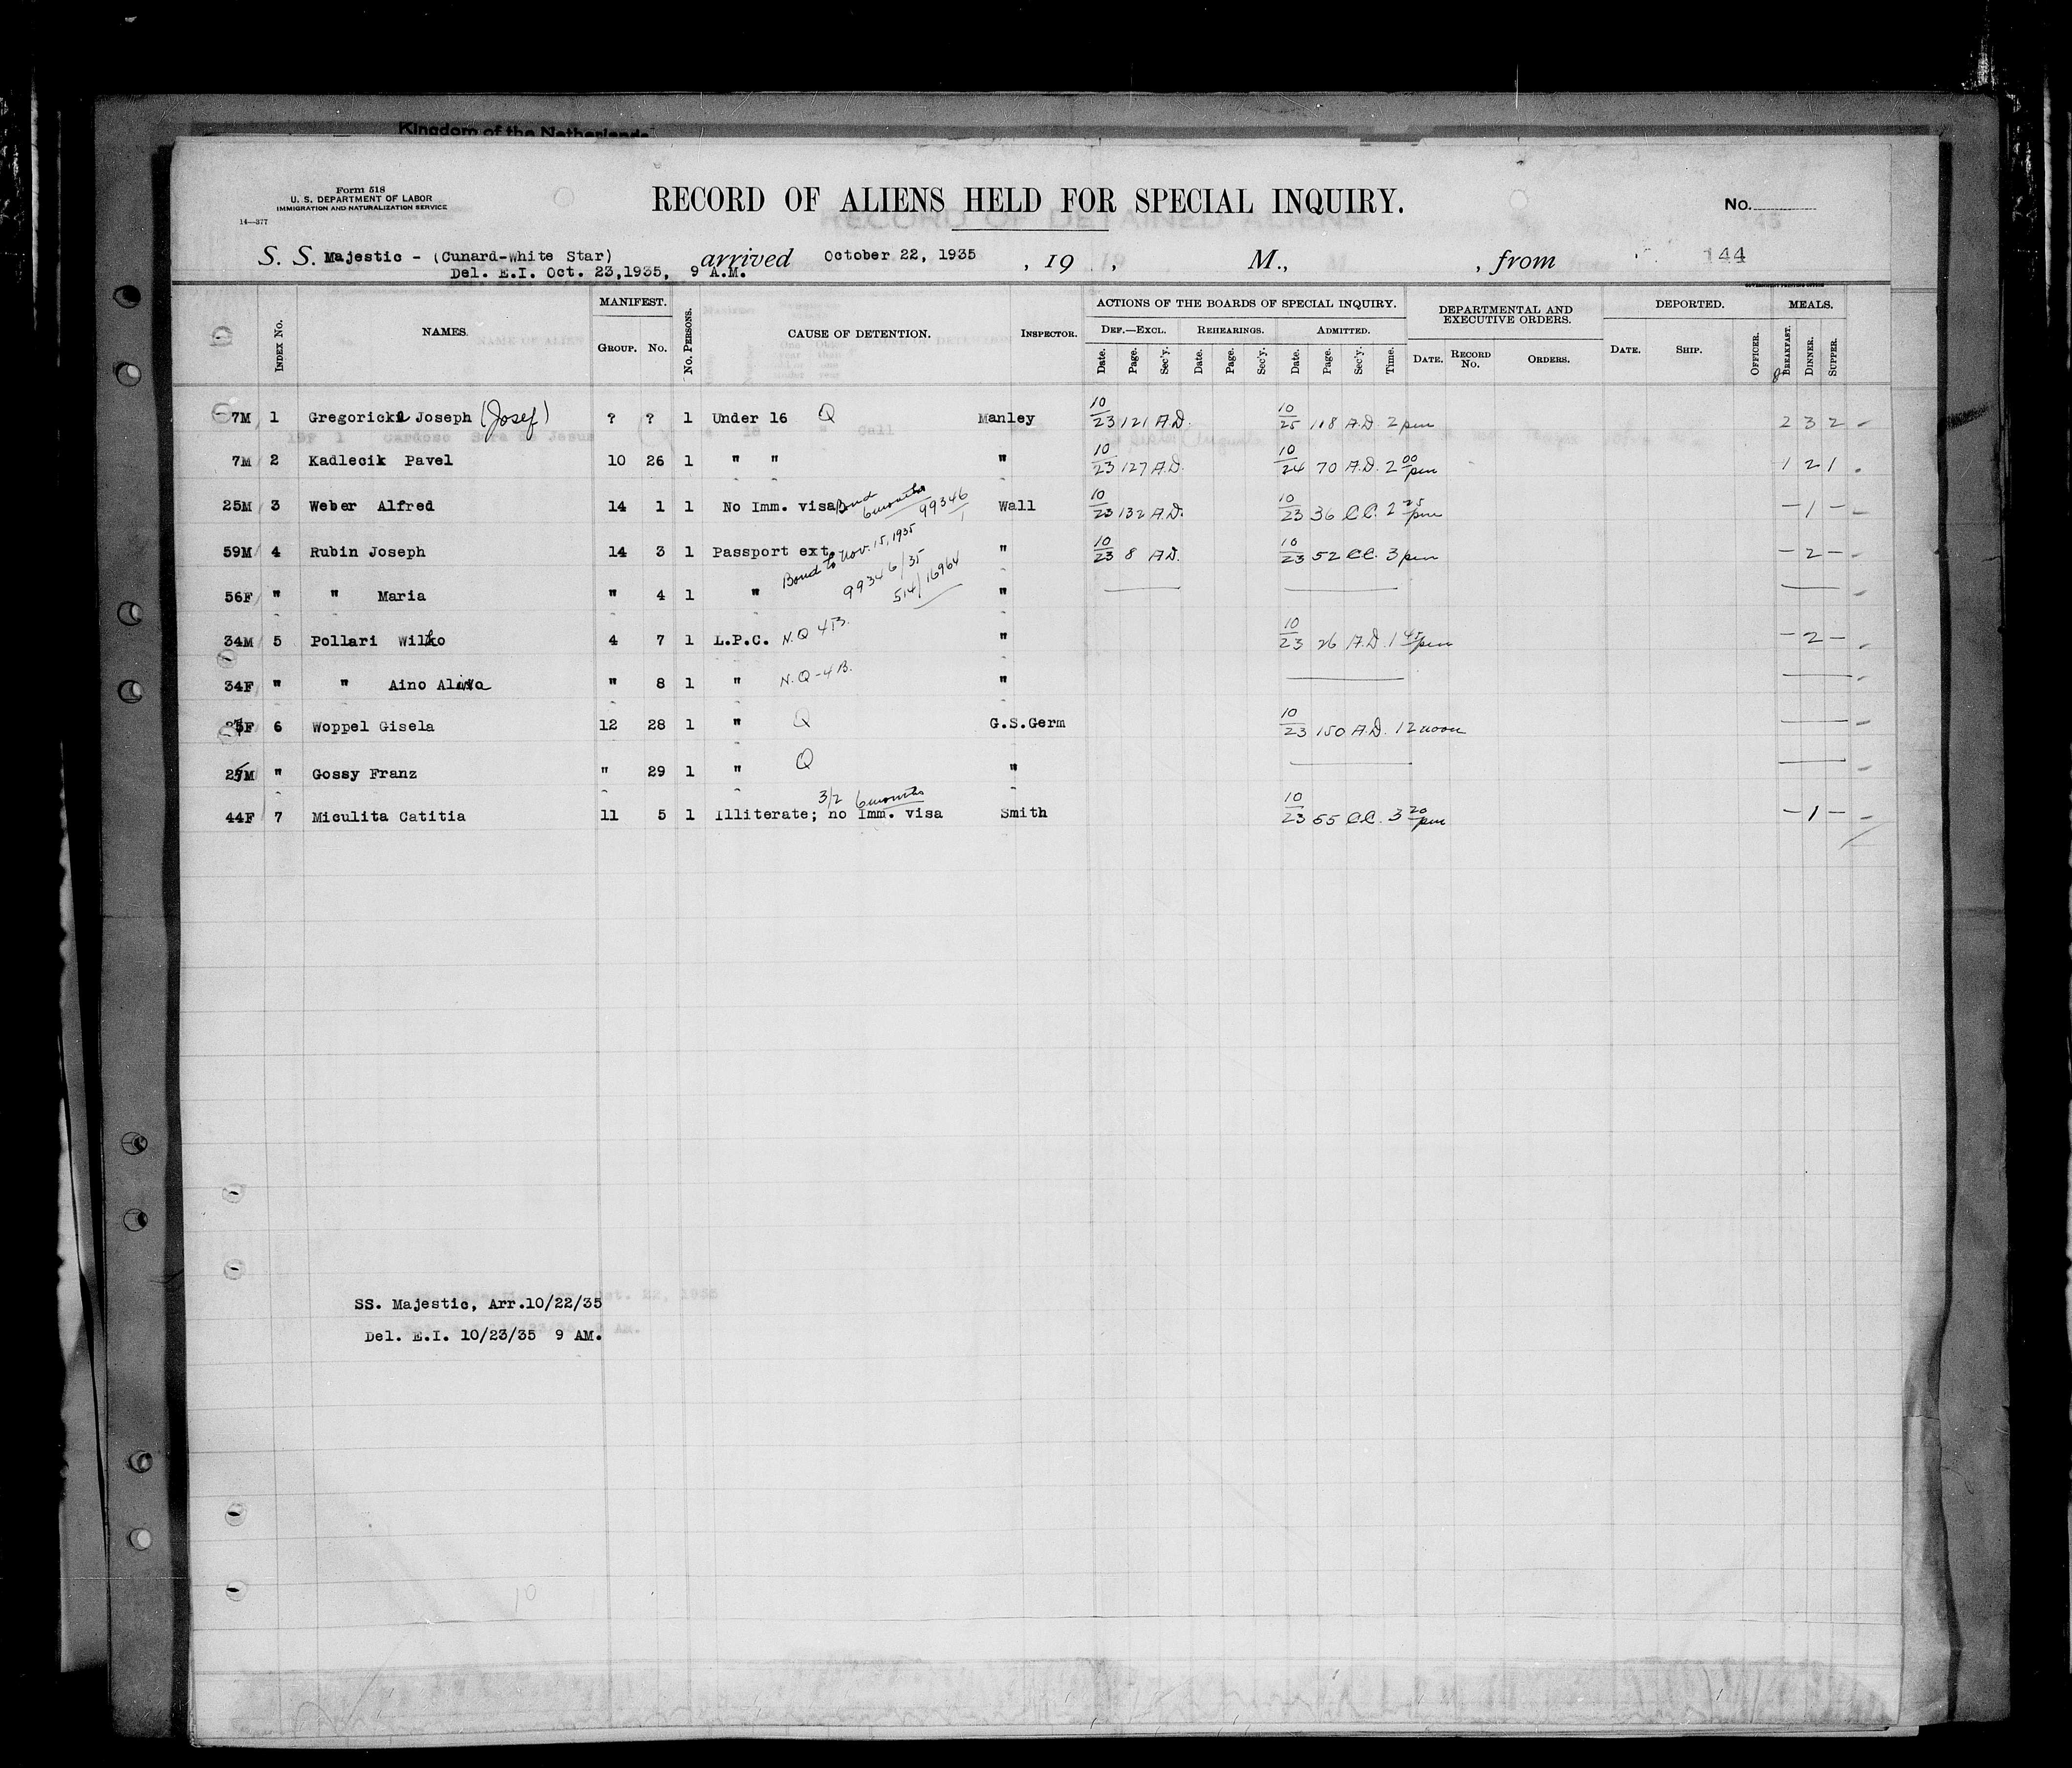 Kingdom of the Netherlands
Form 518
U. S. DEPARTMENT OF LABOR
IMMIGRATION AND NATURALIZATION SERVICE
14—377
RECORD OF ALIENS HELD FOR SPECIAL INQUIRY.
No.
S. S. Majestic - (Cunard-White Star) arrived October 22, 1935 , 19 , M., , from 144
Del. E.I. Oct. 23,1935, 9 A.M.
GOVERNMENT PRINTING OFFICE
Index No. NAMES. MANIFEST. Group. No. No. Persons. CAUSE OF DETENTION. Inspector. ACTIONS OF THE BOARDS OF SPECIAL INQUIRY. DEPARTMENTAL AND EXECUTIVE ORDERS. DEPORTED. MEALS.
Def.—Excl. Rehearings. Admitted.
Date. Page. Sec'y. Date. Page. Sec'y. Date. Page. Sec'y. Time. Date. Record No. Orders. Date. Ship. Officer. Breakfast. Dinner. Supper.
7M 1 Gregoricka Joseph (Josef) ? ? 1 Under 16 Q Manley 10/23 121 A.D. 10/25 118 A.D. 2 pm 2 3 2 -
7M 2 Kadlecik Pavel 10 26 1 " " " 10/23 127 A.D. 10/24 70 A.D. 2 00 pm 1 2 1
25M 3 Weber Alfred 14 1 1 No Imm. visa Bond 6 months 99346/1 Wall 10/23 132 A.D. 10/23 36 C.C. 2 25 pm - 1 - -
59M 4 Rubin Joseph 14 3 1 Passport ext. Bond to Nov. 15, 1935 " 10/23 8 A.D. 10/23 52 C.C. 3 pm - 2 - -
56F " " Maria " 4 1 " 99346/35 514/16964 "
34M 5 Pollari Wilho 4 7 1 L.P.C. N.Q 4B. " 10/23 26 A.D. 1 45 pm - 2 - -
34F " " Aino " 8 1 " N.Q-4B. "
6 Woppel Gisela 12 28 1 " Q G.S.Germ 10/23 150 A.D. 12 noon
" Gossy Franz " 29 1 " Q "
44F 7 Miculita Catitia 11 5 1 Illiterate; no Imm. visa 3/2 6 months Smith 10/23 55 C.C. 3 20 pm - 1 - -
SS. Majestic, Arr.10/22/35
Del. E.I. 10/23/35 9 AM.
10